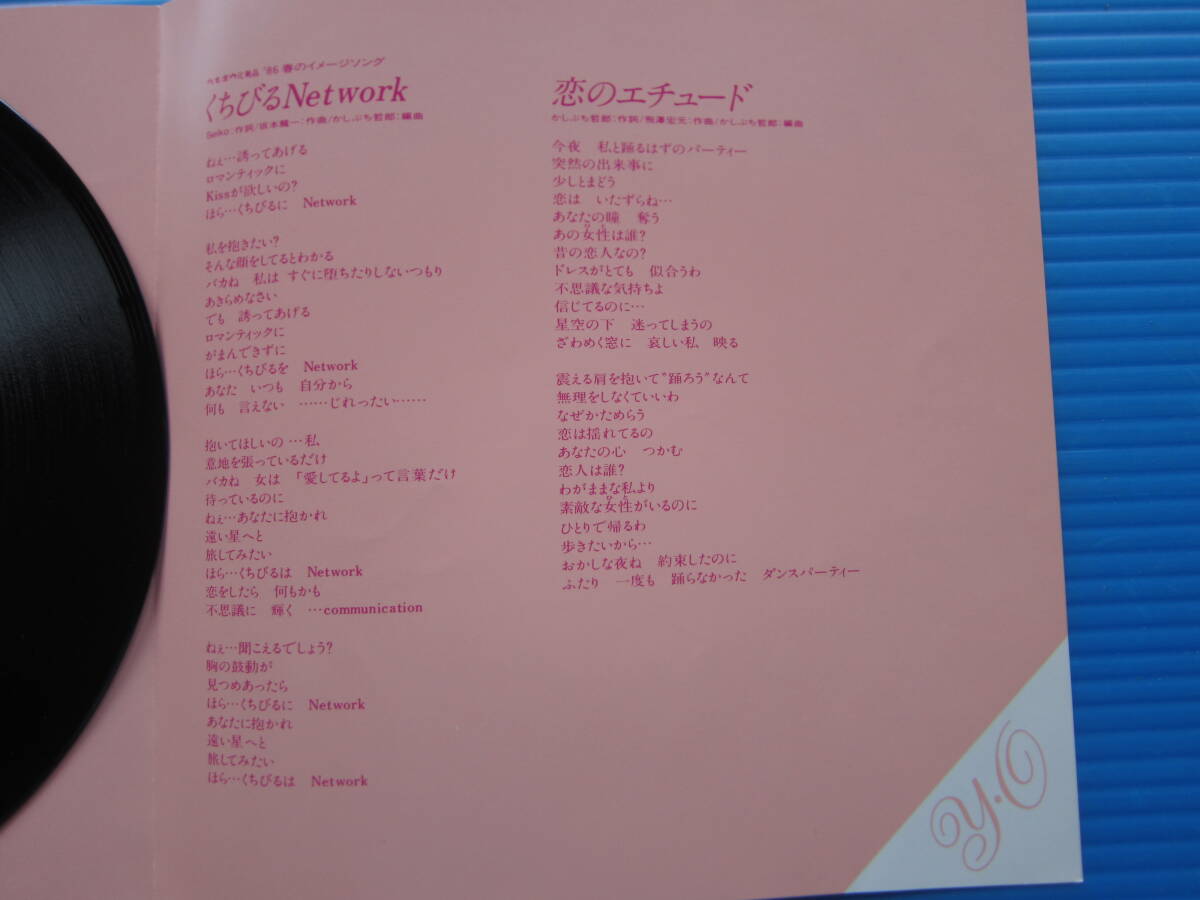 カネボウ化粧品 '86 春のイメージソング
くちびるNetwork
Seiko:作詞/坂本龍一:作曲/かしぶち哲郎:編曲
ねぇ…誘ってあげる
ロマンティックに
Kissが欲しいの?
ほら…くちびるに Network
私を抱きたい?
そんな顔をしてるとわかる
バカね 私は すぐに堕ちたりしないつもり
あきらめなさい
でも 誘ってあげる
ロマンティックに
がまんできずに
ほら…くちびるを Network
あなた いつも 自分から
何も 言えない ……じれったい……
抱いてほしいの …私、
意地を張っているだけ
バカね 女は 「愛してるよ」って言葉だけ
待っているのに
ねぇ…あなたに抱かれ
遠い星へと
旅してみたい
ほら…くちびるは Network
恋をしたら 何もかも
不思議に 輝く …communication
ねぇ…聞こえるでしょう?
胸の鼓動が
見つめあったら
ほら…くちびるに Network
あなたに抱かれ
遠い星へと
旅してみたい
ほら…くちびるは Network
恋のエチュード
かしぶち哲郎:作詞/熊澤宏元:作曲/かしぶち哲郎:編曲
今夜 私と踊るはずのパーティー
突然の出来事に
少しとまどう
恋は いたずらね…
あなたの瞳 奪う
あの女性は誰?
昔の恋人なの?
ドレスがとても 似合うわ
不思議な気持ちよ
信じてるのに…
星空の下 迷ってしまうの
ざわめく窓に 哀しい私、映る
震える肩を抱いて“踊ろう”なんて
無理をしなくていいわ
なぜかためらう
恋は揺れてるの
あなたの心 つかむ
恋人は誰?
わがままな私より
素敵な女性がいるのに
ひとりで帰るわ
歩きたいから…
おかしな夜ね 約束したのに
ふたり 一度も 踊らなかった ダンスパーティー
Y・O